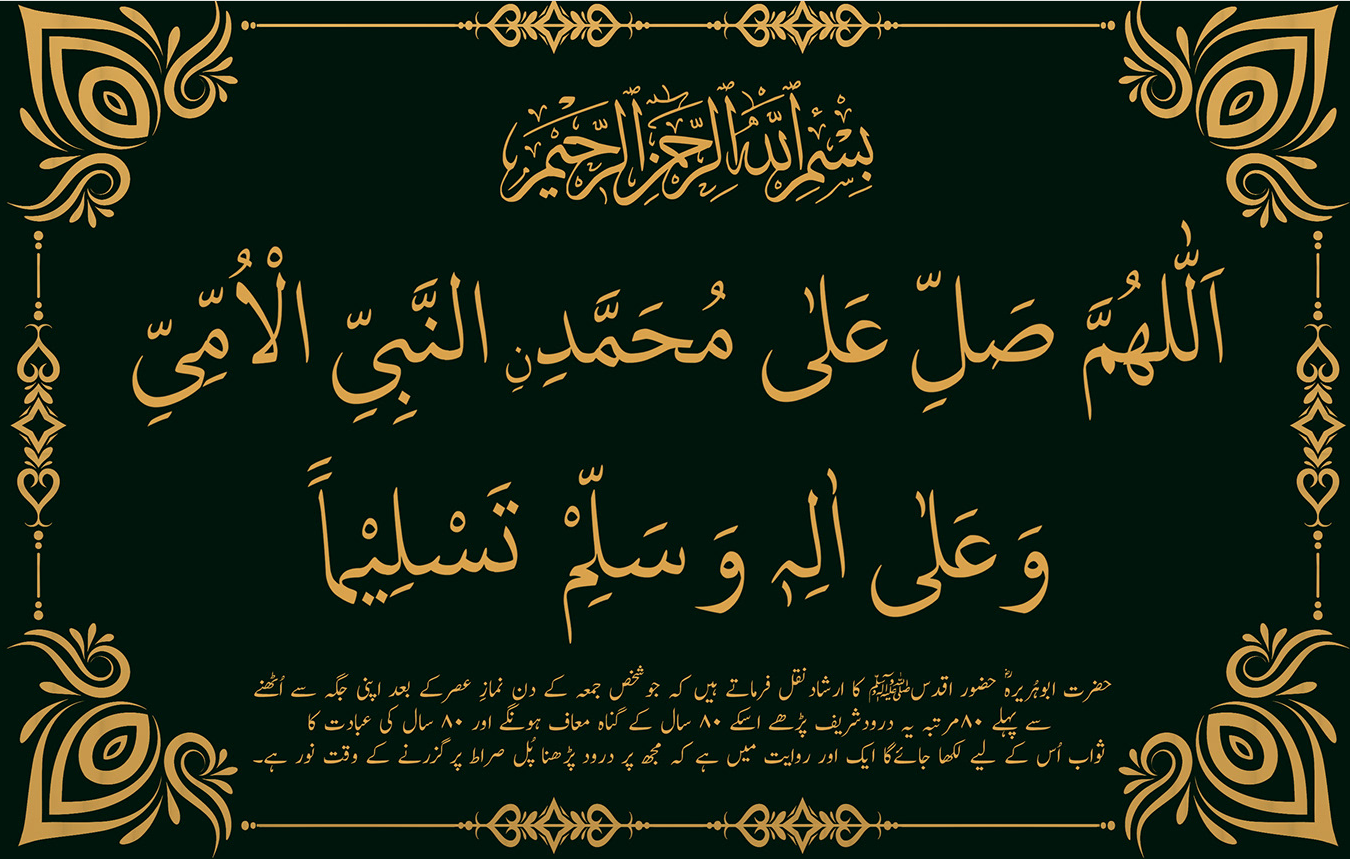 بِسْمِ اللّٰهِ الرَّحْمٰنِ الرَّحِيْمِ
اَللّٰهُمَّ صَلِّ عَلٰى مُحَمَّدِنِ النَّبِيِّ الْاُمِّيِّ
وَعَلٰى اٰلِهٖ وَسَلِّمْ تَسْلِيْماً
حضرت ابوہُریرہؓ حضور اقدسﷺ کا ارشاد نقل فرماتے ہیں کہ جو شخص جمعہ کے دن نمازِ عصر کے بعد اپنی جگہ سے اُٹھنے
سے پہلے ۸۰ مرتبہ یہ درود شریف پڑھے اسکے ۸۰ سال کے گناہ معاف ہونگے اور ۸۰ سال کی عبادت کا
ثواب اُس کے لیے لکھا جائےگا ایک اور روایت میں ہے کہ مجھ پر درود پڑھنا پُل صراط پر گزرنے کے وقت نور ہے۔